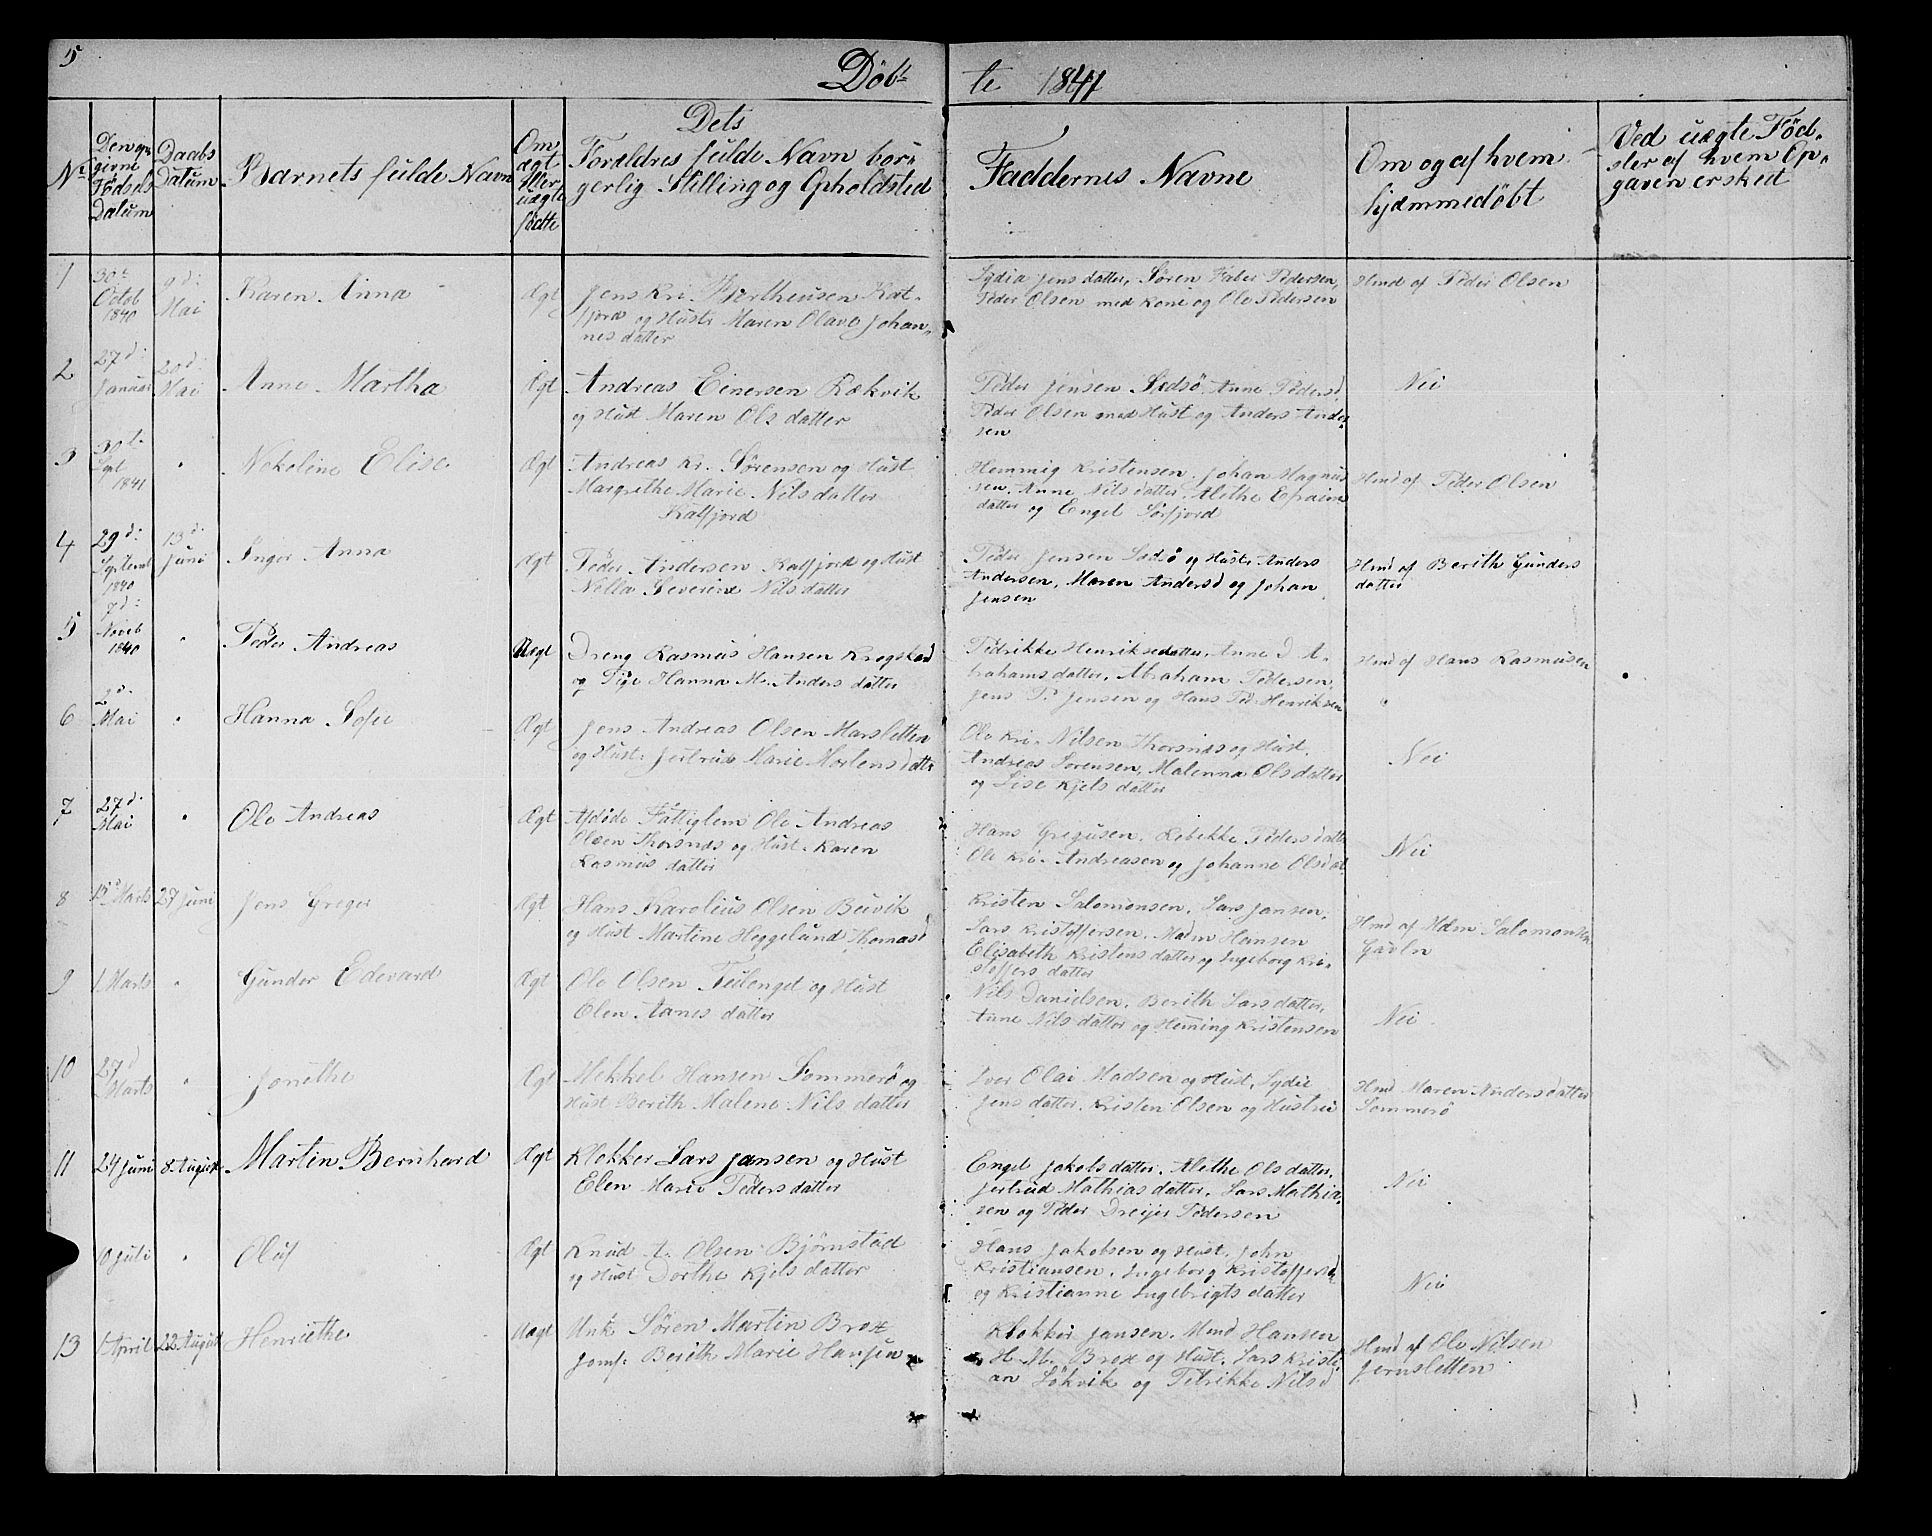 5
Døb-
te 1841
Nr
Den op-
givne
Fødsels
Datum
Daabs
Datum
Barnets fulde Navn
Om
ægt
eller
uægte
fødte
Dets
Forældres fulde Navn bor-
gerlig Stilling og Opholdsted
Faddernes Navne
Om og af hvem
hjemmedøbt
Ved uægte Fød-
sler af hvem Op-
gaven er sked
1
30te
Octob
1840
9d:
Mai
Karen Anna
Ægt
Jens Kri. Bertheusen Kat-
fjord og Hustr Maren Olave Johan-
nes datter
Lydia Jens datter, Søren Faber Pedersen,
Peder Olsen med Kone og Ole Pedersen
Hmd af Peder Olsen
2
27d:
Januar
20d:
Mai
Anne Martha
Ægt
Andreas Einersen Rækvik
og Hust Maren Ols datter
Peder Jensen Sedsø, Anne Pedersd
Peder Olsen med Hust og Anders Ander-
sen
Nei
3
30te
Sept
1841
"
Nekoline Elise
Ægt
Andreas Kr. Sørensen og Hust
Margrethe Marie Nils datter
Katfjord
Hemmig Kristensen, Johan Magnus
sen, Anne Nils datter, Alethe Efraim
datter og Engel Sørfjord
Hmd af Peder Olsen
4
29d:
Septemb
1840
13d:
Juni
Inger Anna
Ægt
Peder Andersen Katfjord og Hust
Nella Severine Nils datter
Peder Jensen Sedsø og Hustr, Anders
Andersen, Maren Andersd og Johan
Jensen
Hmd af Berith Gunders
datter
5
7d:
Noveb
1840
"
Peder Andreas
Uægt
Dreng Rasmus Hansen Krogskad
og Pige Hanna M. Anders datter
Pedrikke Henriksedatter, Anne D A-
brahams datter, Abraham Pedersen,
Jens P. Jensen og Hans Ped Henriksen
Hmd af Hans Rasmusen
"
6
2d.
Mai
"
Hanna Sofie
Ægt
Jens Andreas Olsen Marsletten
og Hust. Jertrud Marie Mortens datt
Ole Kri. Nilsen Thorsnæs og Hust.
Andreas Sørensen, Malenna Olsdatter
og Lise Kjels datter
Nei
7
27d.
Mai
"
Ole Andreas
Ægt
Afdøde Fattiglem Ole Andreas
Olsen Thorsnæs og Hust. Karen
Rasmus datter
Hans Gregusen, Rebekke Peders datt
Ole Kri. Andreasen og Johanne Olsdat
Nei
8
15d Marts
27 Juni
Jens Greger
Ægt
Hans Karolius Olsen Buvik
og Hust Martine Heggelund Thomasd
Kristen Salomonsen, Lars Jansen,
Lars Kristoffersen, Madm Hansen
Elisabeth Kristens datter og Ingeborg Kri-
stoffers datter
Hmd af Mdm Salomonsen
Gaveln
9
1 Marts
"
Gunder Edevard
Ægt
Ole Olsen Teilenget og Hust
Elen Aanes datter
Nils Danielsen, Berith Lars datter,
Anne Nils datter og Heming Kristensen
Nei
10
27d
Marts
"
Jonethe
Ægt
Mekkel Hansen Sommerø og
Hust Berith Malene Nils datter
Iver Olai Madsen og Hust, Lydie
Jens datter, Kristen Olsen og Hustru
Hmd Maren Anders datter
Sommerø
11
24 Juni
8. August
Martin Bernhard
Ægt
Klokker Lars Jansen og Hust
Elen Marie Peders datter
Engel Jakobs datter, Alethe Ols datter,
Jertrud Mathias datter, Lars Mathia-
sen og Peder Dreijer Pedersen
Nei
10 Juli
"
Oluf
Ægt
Knud A. Olsen Bjørnstad
og Hust Dorthe Kjels datter
Hans Jakobsen og Hust, John
Kristiansen, Ingeborg Kristoffersd
og Kristianne Ingebrigts datter
Nei
13
1 April
22 August
Henriethe
Uægt
Unk Søren Martin Brox
Jomf. Berith Marie Hansen
Klokker Jansen, Mmd Hansen
H. M. Brox og Hust, Lars Kristi-
an Løkvik og Petrikke Nilsd
Hmd af Ole Nilsen
Jernsletten